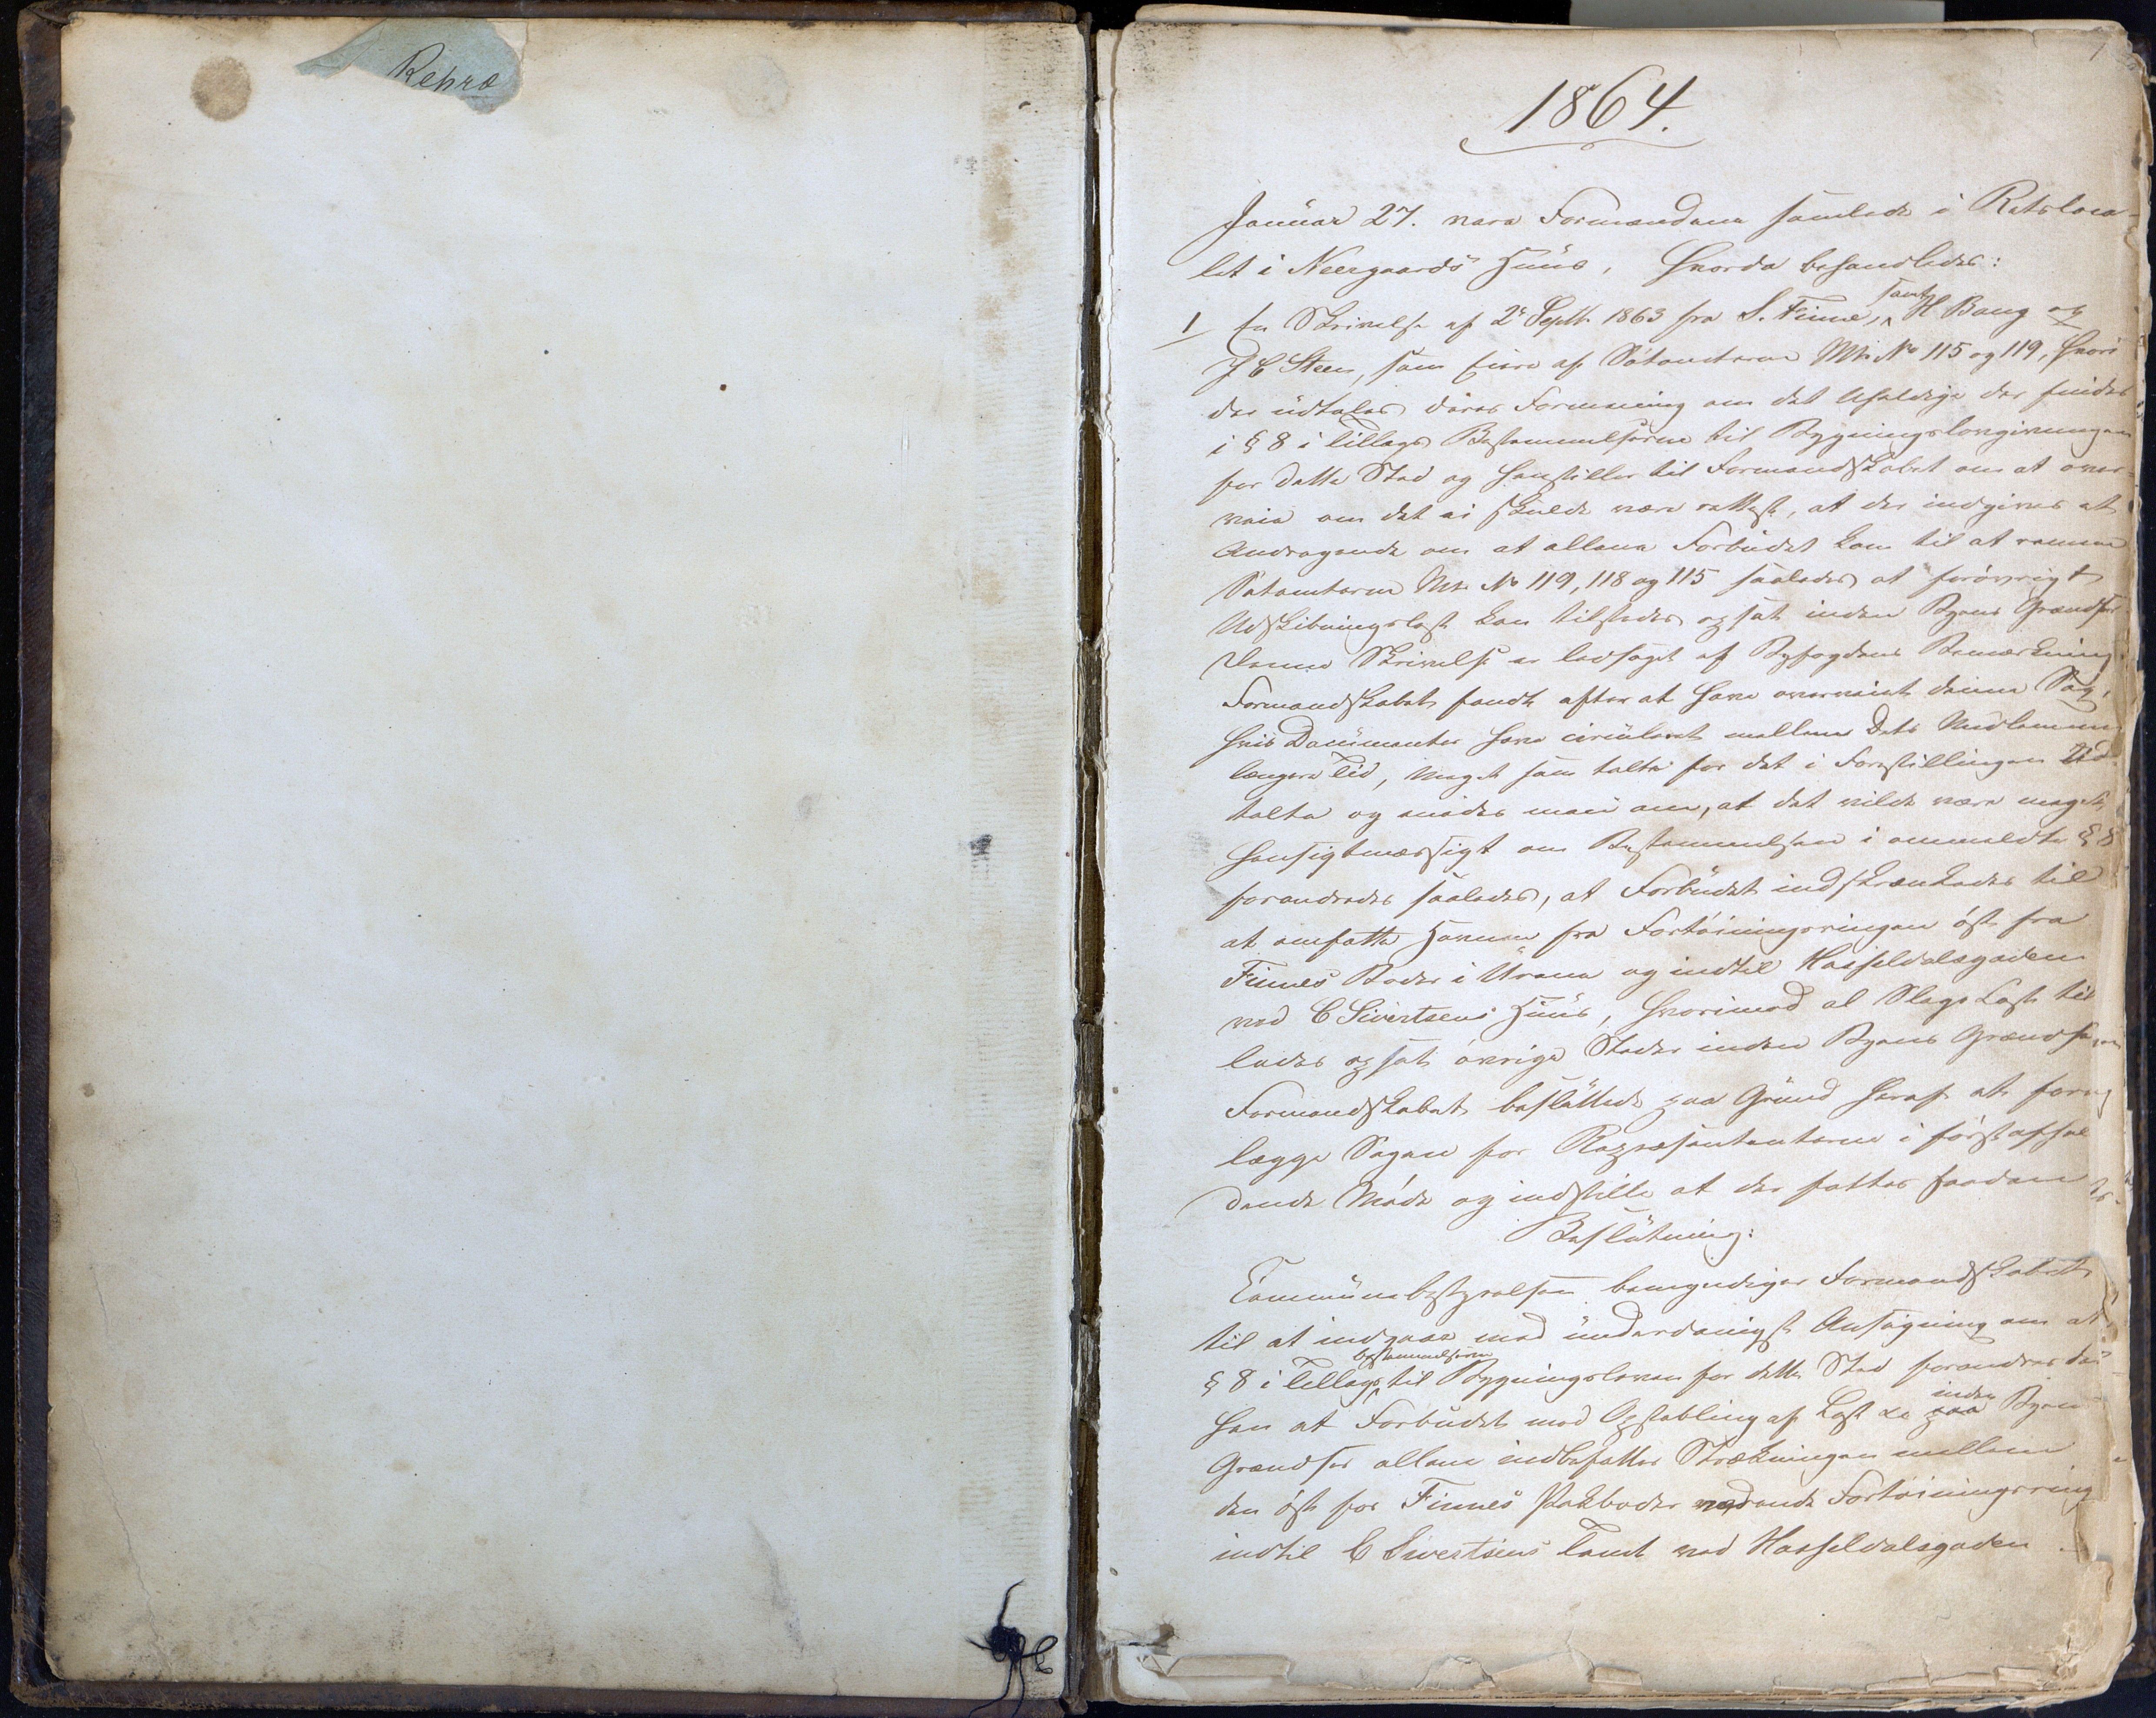 Repræ
1
1864.
Januar 27. vare Formændene samlede i Retsloca-
let i Neergaards Huus, hvorda behandledes:
1/ En Skrivelse af 2' Septbr 1863 fra S. Finne, samt H Bang og
J C Steen, som Eiere af Sötomterne Mt: No 115 og 119, hvori
der udtales deres Formening om det Uheldige der findes
i § 8 i Tillægs Bestemmelserne til Bygningslovgivningen
for dette Sted og henstiller til Formandskabet om at over-
veie om det ei skulde være rettest, at der indgives et
Andragende om at allene Forbudet kom til at ramme
Sötomterne Mt: No 119, 118 og 115 saaledes at forövrigt
Udskibningslast kan tilstedes opsat inden Byens Grændser.
Denne Skrivelse er ledsaget af Byfogdens Bemærkning.
Formandskabet fandt efter at have overveiet denne Sag,
hvis Documenter have circuleret mellem Dets Medlemmer
længere Tid, meget som talte for det i Forestillingen Ud-
talte og enedes man om, at det vilde være meget
hensigtmæssigt om Bestemmelsen i ommeldte § 8
forandredes saaledes, at Forbudet indskrænkedes til
at omfatte Havnen fra Fortöiningsringen öst fra
Finnes Boder i Urene og indtil Hasseldalsgaden
ved C Sivertsens Huus, hvorimod al Slags Last til-
lades opsat övrige Steder inden Byens Grændser
Formandskabet besluttede paa Grund heraf at fore-
lægge Sagen for Repræsentanterne i förstafhol-
dende Möde og indstille at der fattes saadan
Beslutning:
Communebestyrelsen bemyndiger Formandskabet
til at indgaae med underdanigst Ansögning om at
§ 8 i Tillægs bestemmelserne til Bygningsloven for dette Sted forandres der-
hen at Forbudet mod Opstabling af Last &c paa inden Byens
Grændser allene indbefatter Strækningen mellem
den öst for Finnes Pakboder værende Fortöiningsring
indtil C Sivertsens Tomt ved Hasseldalsgaden.